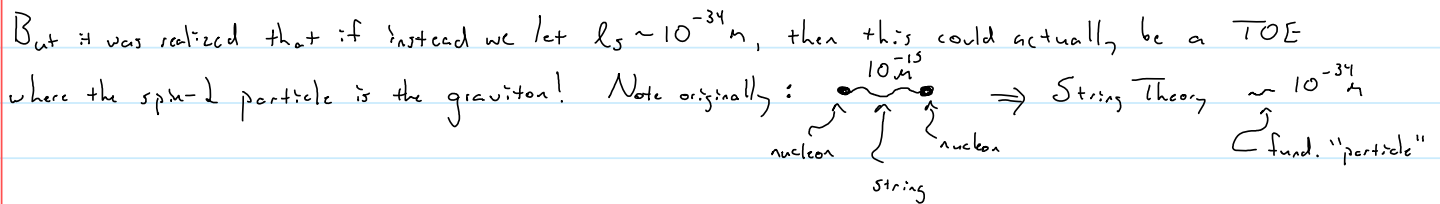 But it was realized that if instead we let ls ~ 10^-34 m, then this could actually be a TOE
where the spin-2 particle is the graviton! Note originally: 10^-15 m ⇒ String Theory ~ 10^-34 m
nucleon nucleon fund. "particle"
string